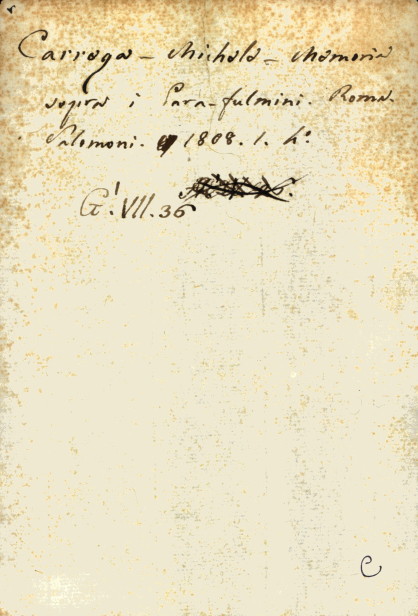 Carraga - Michele - Memoria
sopra i Para-fulmini. Roma.
Salomoni. 1808. 1. 4.º
G! VII. 36
C